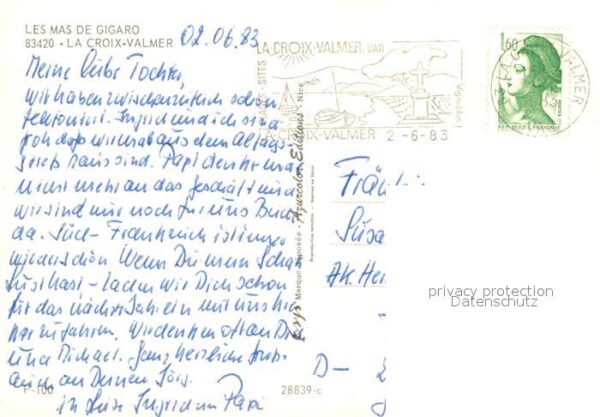 LES MAS DE GIGARO
83420 - LA CROIX-VALMER
02.06.83
Meine liebe Tochter,
wir haben zwischenzeitlich schon
telefoniert. Ingrid und ich sind
froh daß wir mal aus dem Alltags-
streß raus sind. Papi denkt
nicht mehr an das Geschäft und
wir sind nur noch für uns Beide
da. Süd-Frankreich ist immer
wieder schön. Wenn Du mein Schatz
Lust hast - laden wir Dich schon
für das nächste Jahr ein mit uns hier
her zu fahren. Wir denken oft an Dich
und Michael. Ganz herzliche Grüße
auch an Deinen Jörg.
in Liebe Ingrid und Papi
P-100
28839-c
LA CROIX-VALMER VAR
SES SITES
Vignobles
LA CROIX-VALMER
2-6-83
LA CROIX VALMER
1,60
REPUBLIQUE FRANÇAISE
Marque déposée - Azurcolor Editions - Nice
Reproduction interdite - Imprimé en
Fräul
Susa
Ak. Hei
D-
privacy protection
Datenschutz